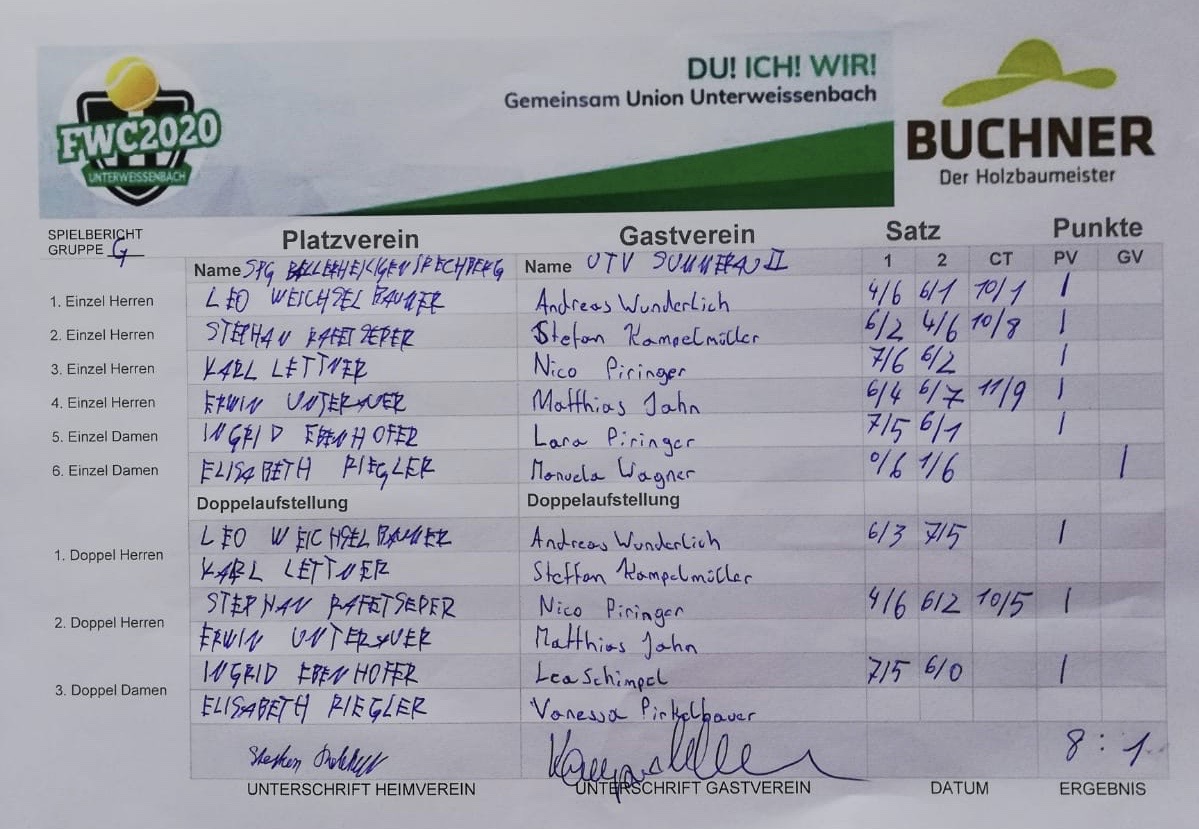 FWC2020
UNTERWEISSENBACH
DU! ICH! WIR!
Gemeinsam Union Unterweissenbach
BUCHNER
Der Holzbaumeister
SPIELBERICHT
GRUPPE G
Platzverein Gastverein Satz Punkte
Name SPG Name UTV SUMMERAU II 1 2 CT PV GV
1. Einzel Herren LEO WEICHSELBAUMER Andreas Wunderlich 4/6 6/1 10/1 1
2. Einzel Herren STEPHAN RAFETSEDER Stefan Kampelmüller 6/2 4/6 10/8 1
3. Einzel Herren KARL LETTNER Nico Piringer 7/6 6/2 1
4. Einzel Herren ERWIN Matthias Jahn 6/4 6/7 11/9 1
5. Einzel Damen INGRID EBENHOFER Lara Piringer 7/5 6/1 1
6. Einzel Damen ELISABETH RIEGLER Manuela Wagner 0/6 1/6 1
Doppelaufstellung Doppelaufstellung
1. Doppel Herren LEO WEICHSELBAUMER Andreas Wunderlich 6/3 7/5 1
KARL LETTNER Steffan Kampelmüller
2. Doppel Herren STEPHAN RAFETSEDER Nico Piringer 4/6 6/2 10/5 1
ERWIN Matthias Jahn
3. Doppel Damen INGRID EBENHOFER Lea Schimpel 7/5 6/0 1
ELISABETH RIEGLER Vanessa Pirkelbauer
8 : 1
UNTERSCHRIFT HEIMVEREIN UNTERSCHRIFT GASTVEREIN DATUM ERGEBNIS